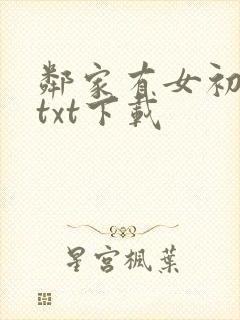 鄰家有女初
txt下載
星宮楓葉